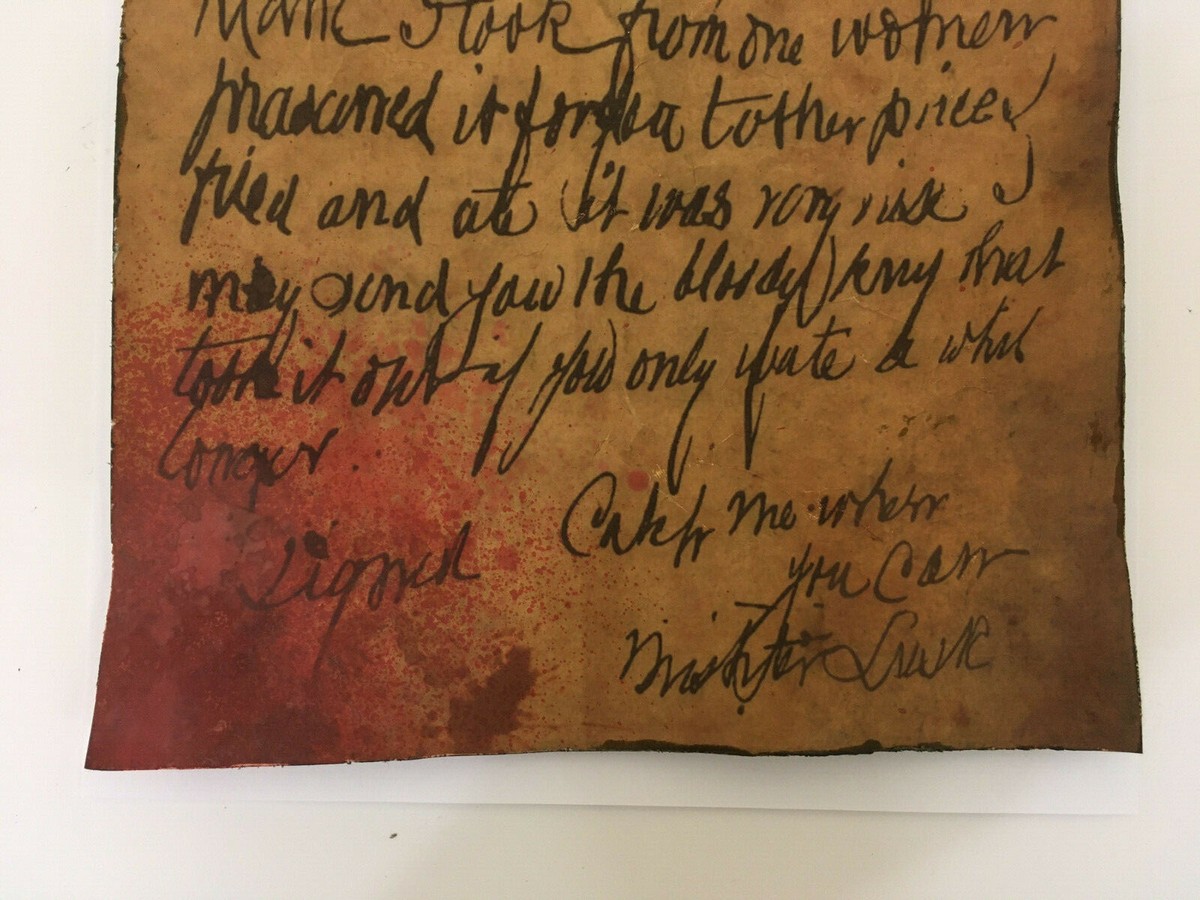 I took from one women
prasarved it for you tother piece I
fried and ate it was very nise I
may send you the bloody knif that
took it out if you only wate a whil
longer.
Signed
Catch me when
you Can
Mishter Lusk